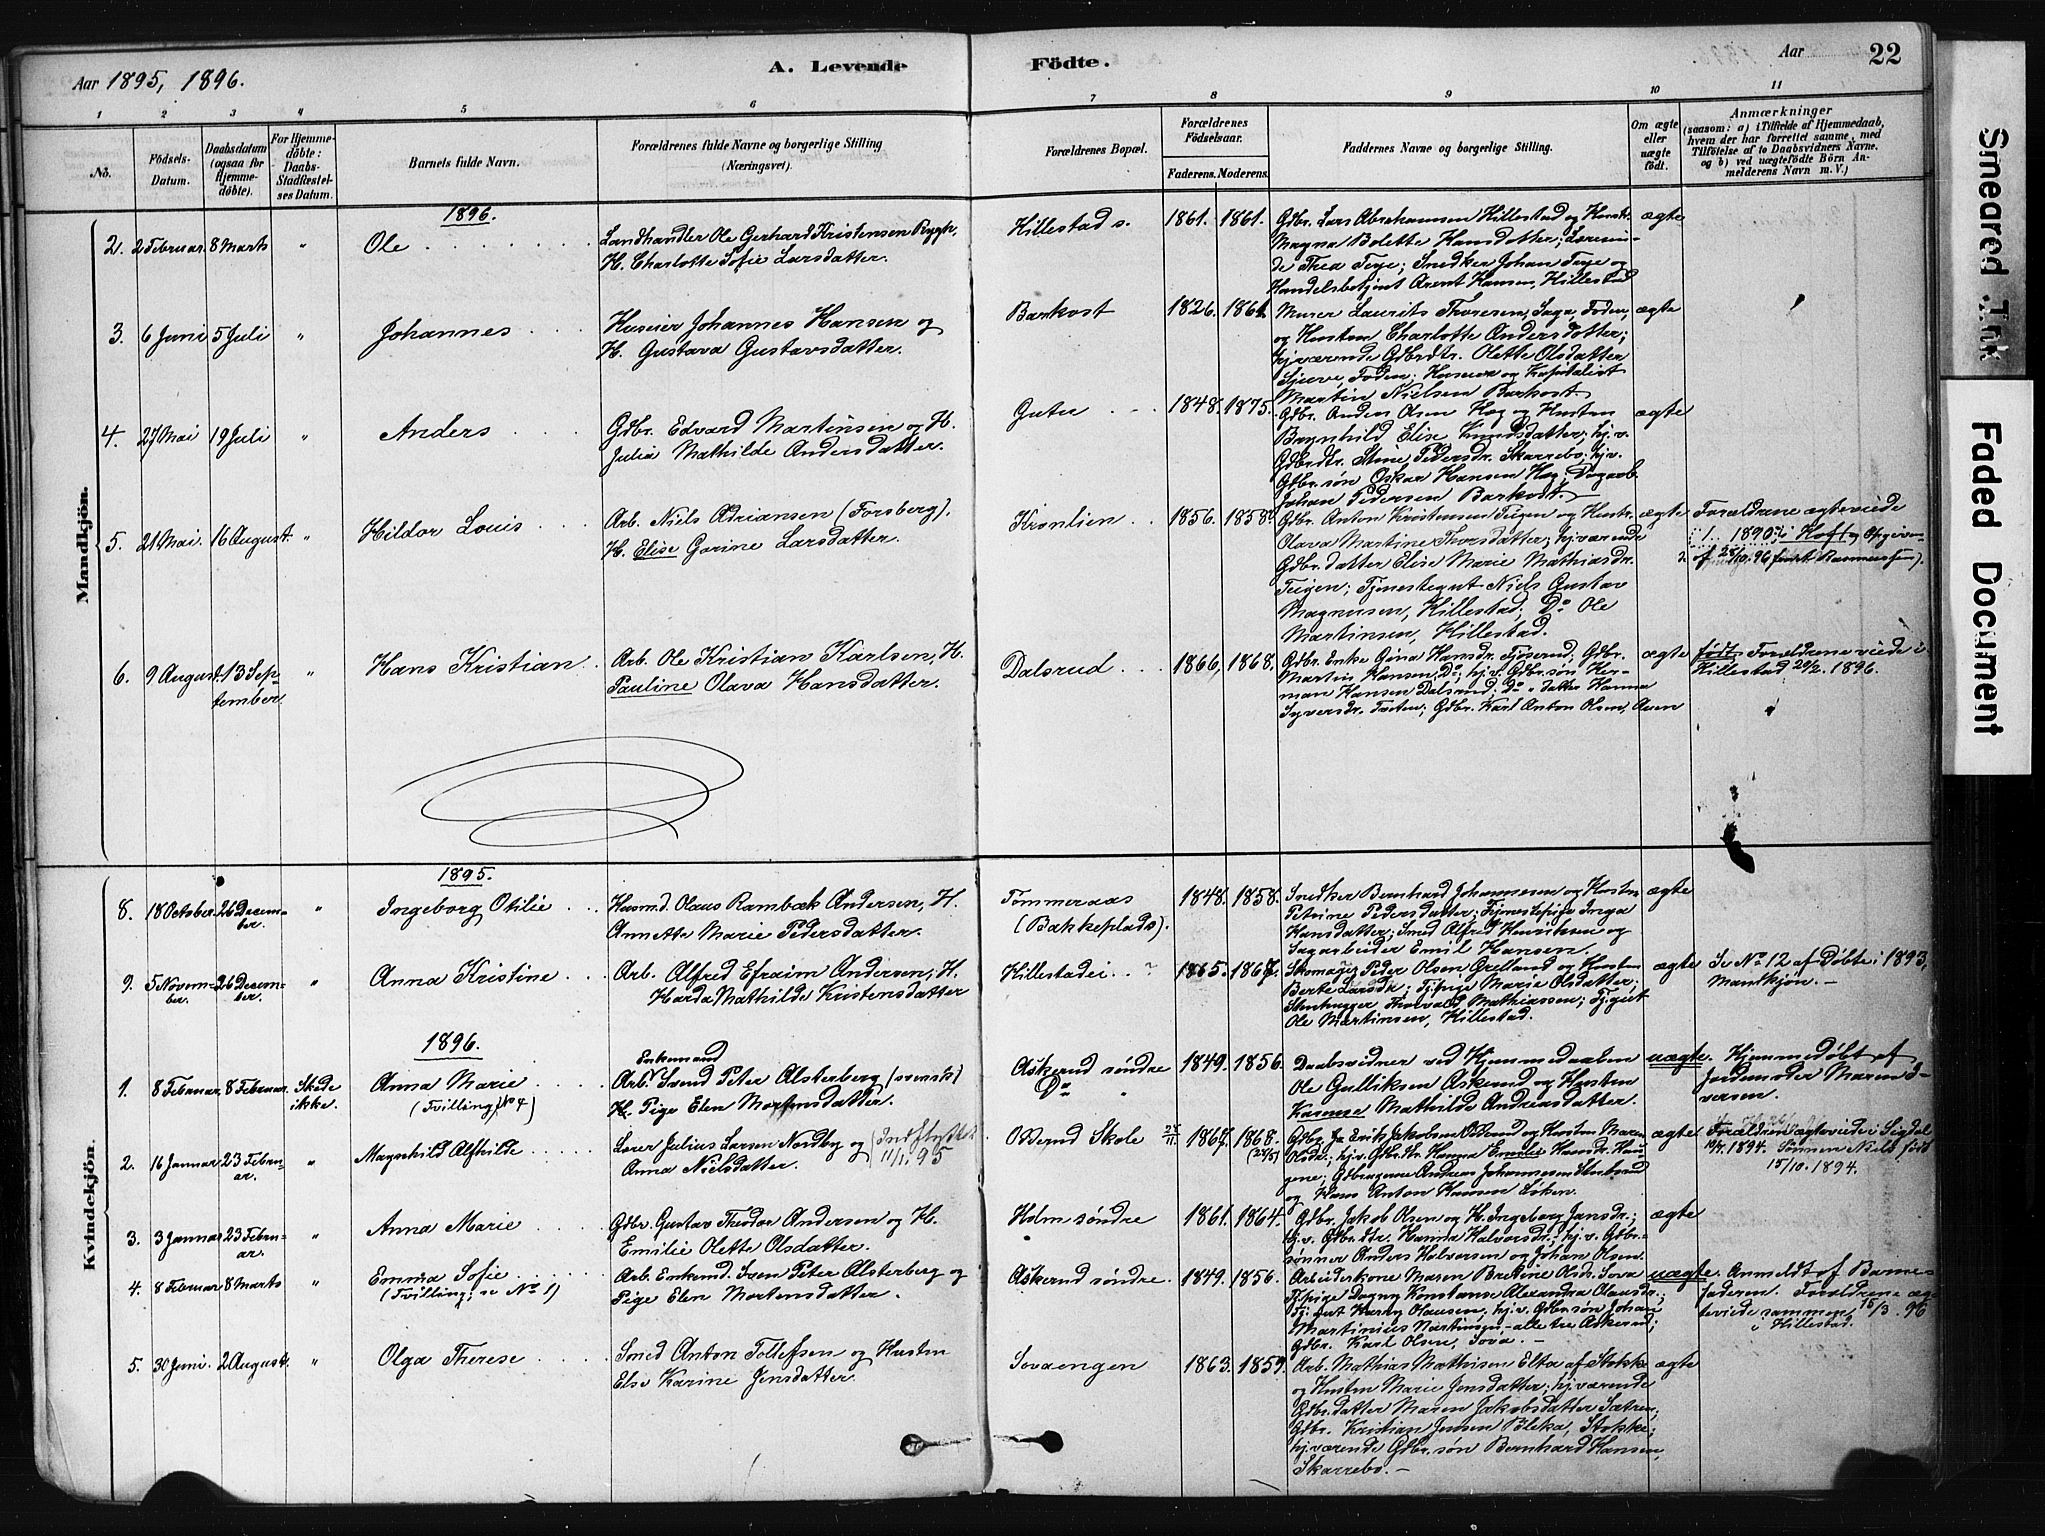 Aar 1895, 1896.
A. Levende
Födte.
Aar
22
Smeared Ink
Faded Document
1 2 3 4 5 6 7 8 9 10 11
No.
Födsels-
Datum.
Daabsdatum
(ogsaa for
Hjemme-
döbte).
For Hjemme-
döbte:
Daabs-
Stadfæstel-
ses Datum.
Barnets fulde Navn.
Forældrenes fulde Navne og borgerlige Stilling
(Næringsvei).
Forældrenes Bopæl.
Forældrenes
Födselsaar.
Faderens. Moderens.
Faddernes Navne og borgerlige Stilling.
Om ægte
eller
uægte
födt.
Anmærkninger
(saasom: a) i Tilfælde af Hjemmedaab,
hvem der har forrettet samme, med
Tilföielse af to Daabsvidners Navne,
og b) ved uægtefödte Börn An-
melderens Navn m. V.)
Mandkjön.
1896.
2. 2 Februar. 8 Marts " Ole
Landhandler Ole Gerhard Kristensen Rygh,
H. Charlotte Sofie Larsdatter.
Hillestad s. 1861. 1861.
Gdbr. Lars Abrahamsen Hillestad og Hustr.
Magna Bolette Hansdatter; Lærerin-
de Thea Teye; Snedker Johan Teye og
Handelsbetjent Arent Hansen, Hillestad
ægte
3. 6 Juni 5 Juli " Johannes
Huseier Johannes Hansen og
H. Gustava Gustavsdatter.
Barkost 1826. 1861.
Murer Laurits Thoresen, Saga, Foden,
og Hustru Charlotte Andersdatter;
hj.værende Gdbrdtr. Olette Olsdatter
Sjuve, Foden; Huseier og Kapitalist
Martin Nielsen Barkost.
ægte
4. 27 Mai 19 Juli " Anders
Gdbr. Edvard Martinsen og H.
Julia Mathilde Andersdatter.
Gutu 1848. 1875.
Gdbr. Anders Olsen Hæg og Hustru
Brynhild Elise Knudsdatter; hj.v.
Gdbrdtr. Stine Pedersdr. Skarrebo; hj.v.
Gdbr.søn Oskar Hansen Hæg; Dagarb.
Johan Pedersen Barkost.
ægte
5. 21 Mai. 16 August. " Hildor Louis
Arb. Niels Adriansen (Forsberg),
H. Elise Gorine Larsdatter.
Kronlien 1856. 1858.
Gdbr. Anton Kristensen Teigen og Hustr.
Olava Martine Thorsdatter; hj.værende
Gdbr.datter Elise Marie Mathiasdr.
Teigen; Tjenestegut Niels Gustav
Magnusen, Hillestad; Do Ole
Martinsen, Hillestad.
ægte
Forældrene ægteviede
1890 i Hof
6. 9 August. 13 Sep-
tember " Hans Kristian
Arb. Ole Kristian Karlsen, H.
Pauline Olava Hansdatter.
Dalsrud 1866, 1868.
Gdbr. Enke Gina Hansdr. Fjøserud; Gdbr.
Martin Hansen, Do; hj.v. Gdbr.søn Her-
man Hansen Dalsrud; Do " datter Hanna
Syversdr. Tveten; Gdbr. Karl Anton Olsen, Auen
ægte
født. Forældrene viede i
Hillestad 21/2. 1896.
Kvindekjön.
1895.
8. 18 October. 26 Decem-
ber. " Ingeborg Otilie
Husmd. Olaus Rambæk Andersen, H.
Annette Marie Pedersdatter.
Tømmeraas
(Bakkeplads).
1848. 1858.
Snedker Bernhard Johannesen og Hustru
Petrine Pedersdatter; Tjenestepige Inga
Hansdatter; Smed Alfred Henriksen og
Sagarbeider Emil Hansen.
ægte
9. 5 Novem-
ber. 26 Decem-
ber. " Anna Kristine
Arb. Alfred Efraim Andersen, H.
Harda Mathilde Kristensdatter
Hillestadei 1865. 1867.
Skomager Peder Olsen Grelland og Hustru
Berte Larsdr.; Tj.pige Marie Olsdatter;
Stenhugger Thorvald Mathiassen; Tj.gut
Ole Martinsen, Hillestad.
ægte
Se No 12 af Døbte i 1893,
Mandkjøn.
1896.
1. 8 Februar. 8 Februar. Skede
ikke. Anna Marie
(Tvilling, No 4)
Enkemand
Arb. Svend Peter Alsterberg (svensk)
H. Pige Elen Mortensdatter.
Askerud søndre
Do "
1849. 1856.
Daabsvidner ved Hjemmedaaben
Ole Gulliksen Askerud og Hustru
Karine Mathilde Andreasdatter.
uægte.
Hjemmedøbt af
Jordemoder Maren I-
versen.
2. 16 Januar 23 Febru-
ar. " Magnhild Alfhilde
Lærer Julius Larsen Nordby og
Anna Nielsdatter.
Indflyttet
11/11 95
Odberud Skole 1867. 1868.
ægte
Forældrene ægteviede i Sigdal
10/4. 1894. Sønnen Niels født
15/10. 1894.
3. 3 Januar 23 Febru-
ar. " Anna Marie
Gdbr. Gustav Theodor Andersen og H.
Emilie Olette Olsdatter.
Holm søndre 1861. 1864.
Gdbr. Jakob Olsen og H. Ingeborg Jansdr.;
hj.v. Gdbr.dtr. Hanna Halvorsdr.; hj.v. Gdbr.-
sønner Anders Halvorsen og Johan Olsen.
ægte
4. 8 Februar 8 Marts " Emma Sofie
(Tvilling; se No 1)
Arb. Enkemd. Sven Peter Alsterberg og
Pige Elen Mortensdatter.
Askerud søndre. 1849. 1856.
Arbeiderkone Maren Bretine Olsdr. Sova
Tj.pige Dagny Konstanse Alexandra Olausdr.;
Tj.gut Harby Olausen, hj.v. Gdbr.søn Johan
Martinius Martinsen, - alle tre Askerud;
Gdbr. Karl Olsen, Sova. -
uægte.
Anmeldt af Barne-
faderen. Forældrene æg-
teviede sammen 15/3. 96
i Hillestad.
5. 30 Juni. 2 August. " Olga Therese
Smed Anton Tollefsen og Hustru
Else Karine Jensdatter.
Sovaengen 1863. 1859.
Arb. Mathias Mathisen Elta af Stokke
og Hustru Marie Jensdatter; hj.værende
Gdbr.datter Maren Jakobsdatter Sætren,
Gdbr. Kristian Jensen Bleka, Stokke;
hj.værende Gdbr.søn Bernhard Hansen,
Skarrebo. -
ægte